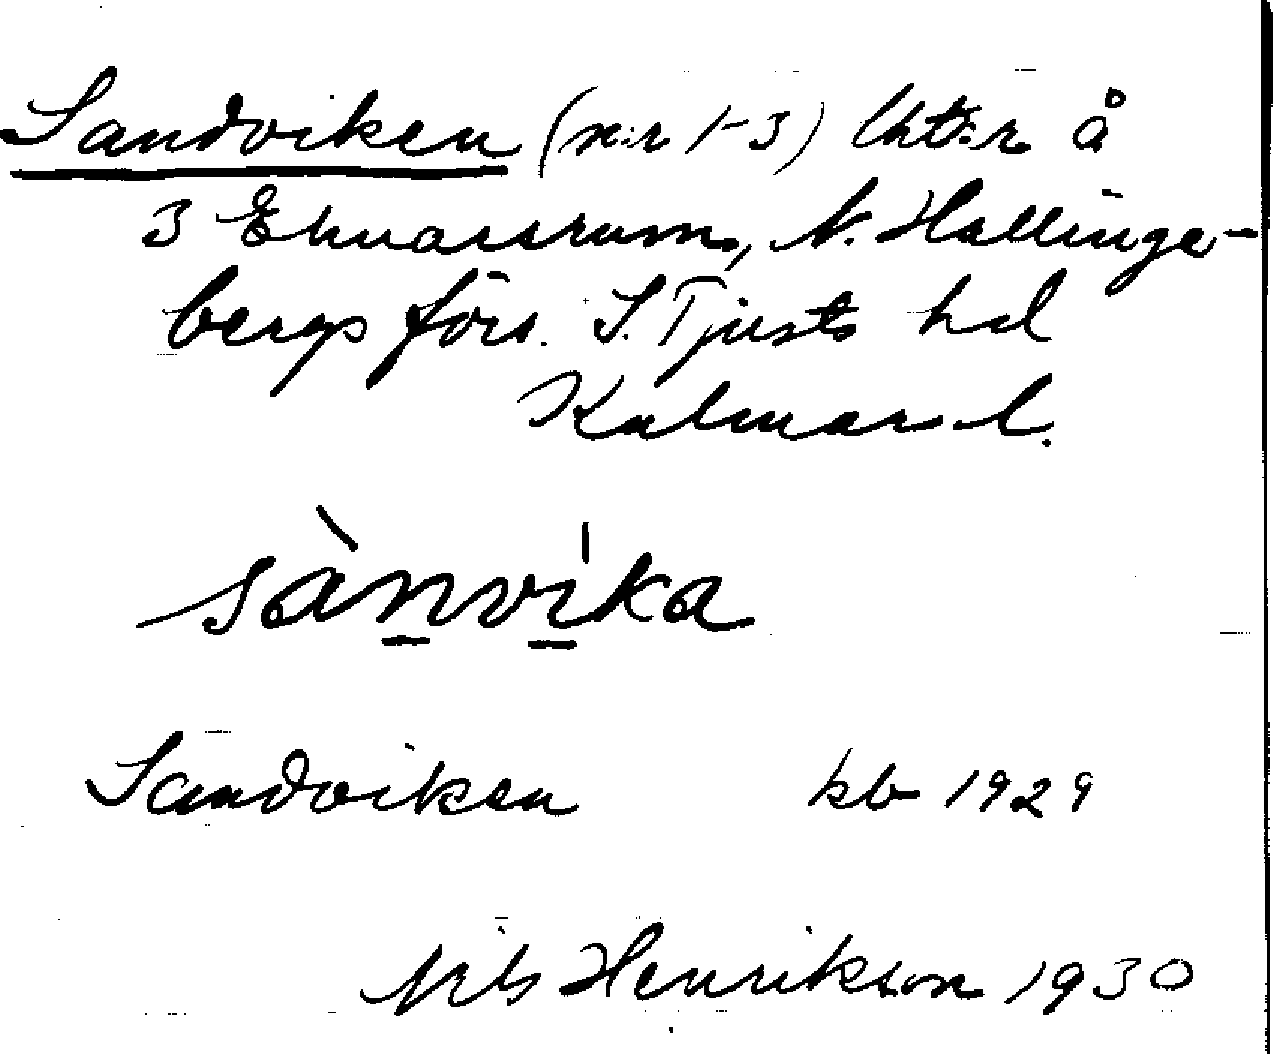 Sandviken (n:r 1-3) lht:r å
3 Ehuarsrum, N. Hallinge-
bergs förs. S. Tjusts hd
Kalmar l.
sànvika
Sandviken kb 1929
Nils Henrikson 1930